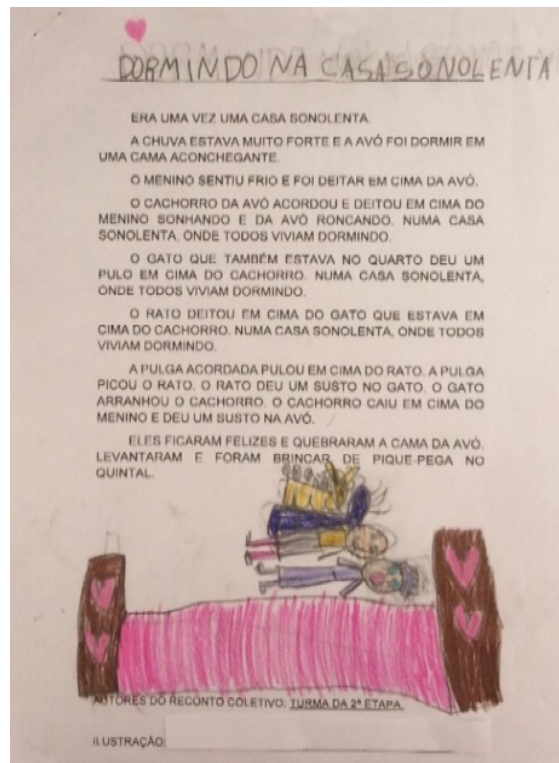 DORMINDO NA CASA SONOLENTA
ERA UMA VEZ UMA CASA SONOLENTA.
A CHUVA ESTAVA MUITO FORTE E A AVÓ FOI DORMIR EM
UMA CAMA ACONCHEGANTE.
O MENINO SENTIU FRIO E FOI DEITAR EM CIMA DA AVÓ.
O CACHORRO DA AVÓ ACORDOU E DEITOU EM CIMA DO
MENINO SONHANDO E DA AVÓ RONCANDO. NUMA CASA
SONOLENTA, ONDE TODOS VIVIAM DORMINDO.
O GATO QUE TAMBÉM ESTAVA NO QUARTO DEU UM
PULO EM CIMA DO CACHORRO. NUMA CASA SONOLENTA,
ONDE TODOS VIVIAM DORMINDO.
O RATO DEITOU EM CIMA DO GATO QUE ESTAVA EM
CIMA DO CACHORRO. NUMA CASA SONOLENTA, ONDE TODOS
VIVIAM DORMINDO.
A PULGA ACORDADA PULOU EM CIMA DO RATO. A PULGA
PICOU O RATO. O RATO DEU UM SUSTO NO GATO. O GATO
ARRANHOU O CACHORRO. O CACHORRO CAIU EM CIMA DO
MENINO E DEU UM SUSTO NA AVÓ.
ELES FICARAM FELIZES E QUEBRARAM A CAMA DA AVÓ.
LEVANTARAM E FORAM BRINCAR DE PIQUE-PEGA NO
QUINTAL.
AUTORES DO RECONTO COLETIVO: TURMA DA 2ª ETAPA.
ILUSTRAÇÃO: